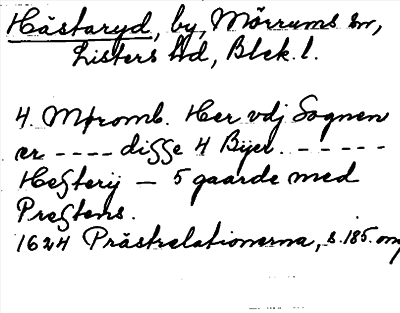 Hästaryd, by, Mörrums sn,
Listers hd, Blek. l.
4. Møromb. Her vdj Sognen
er ---- disse 4 Byer. -----
Hesterij — 5 gaarde med
Prestens.
1624 Prästrelationerna, s. 185. omf